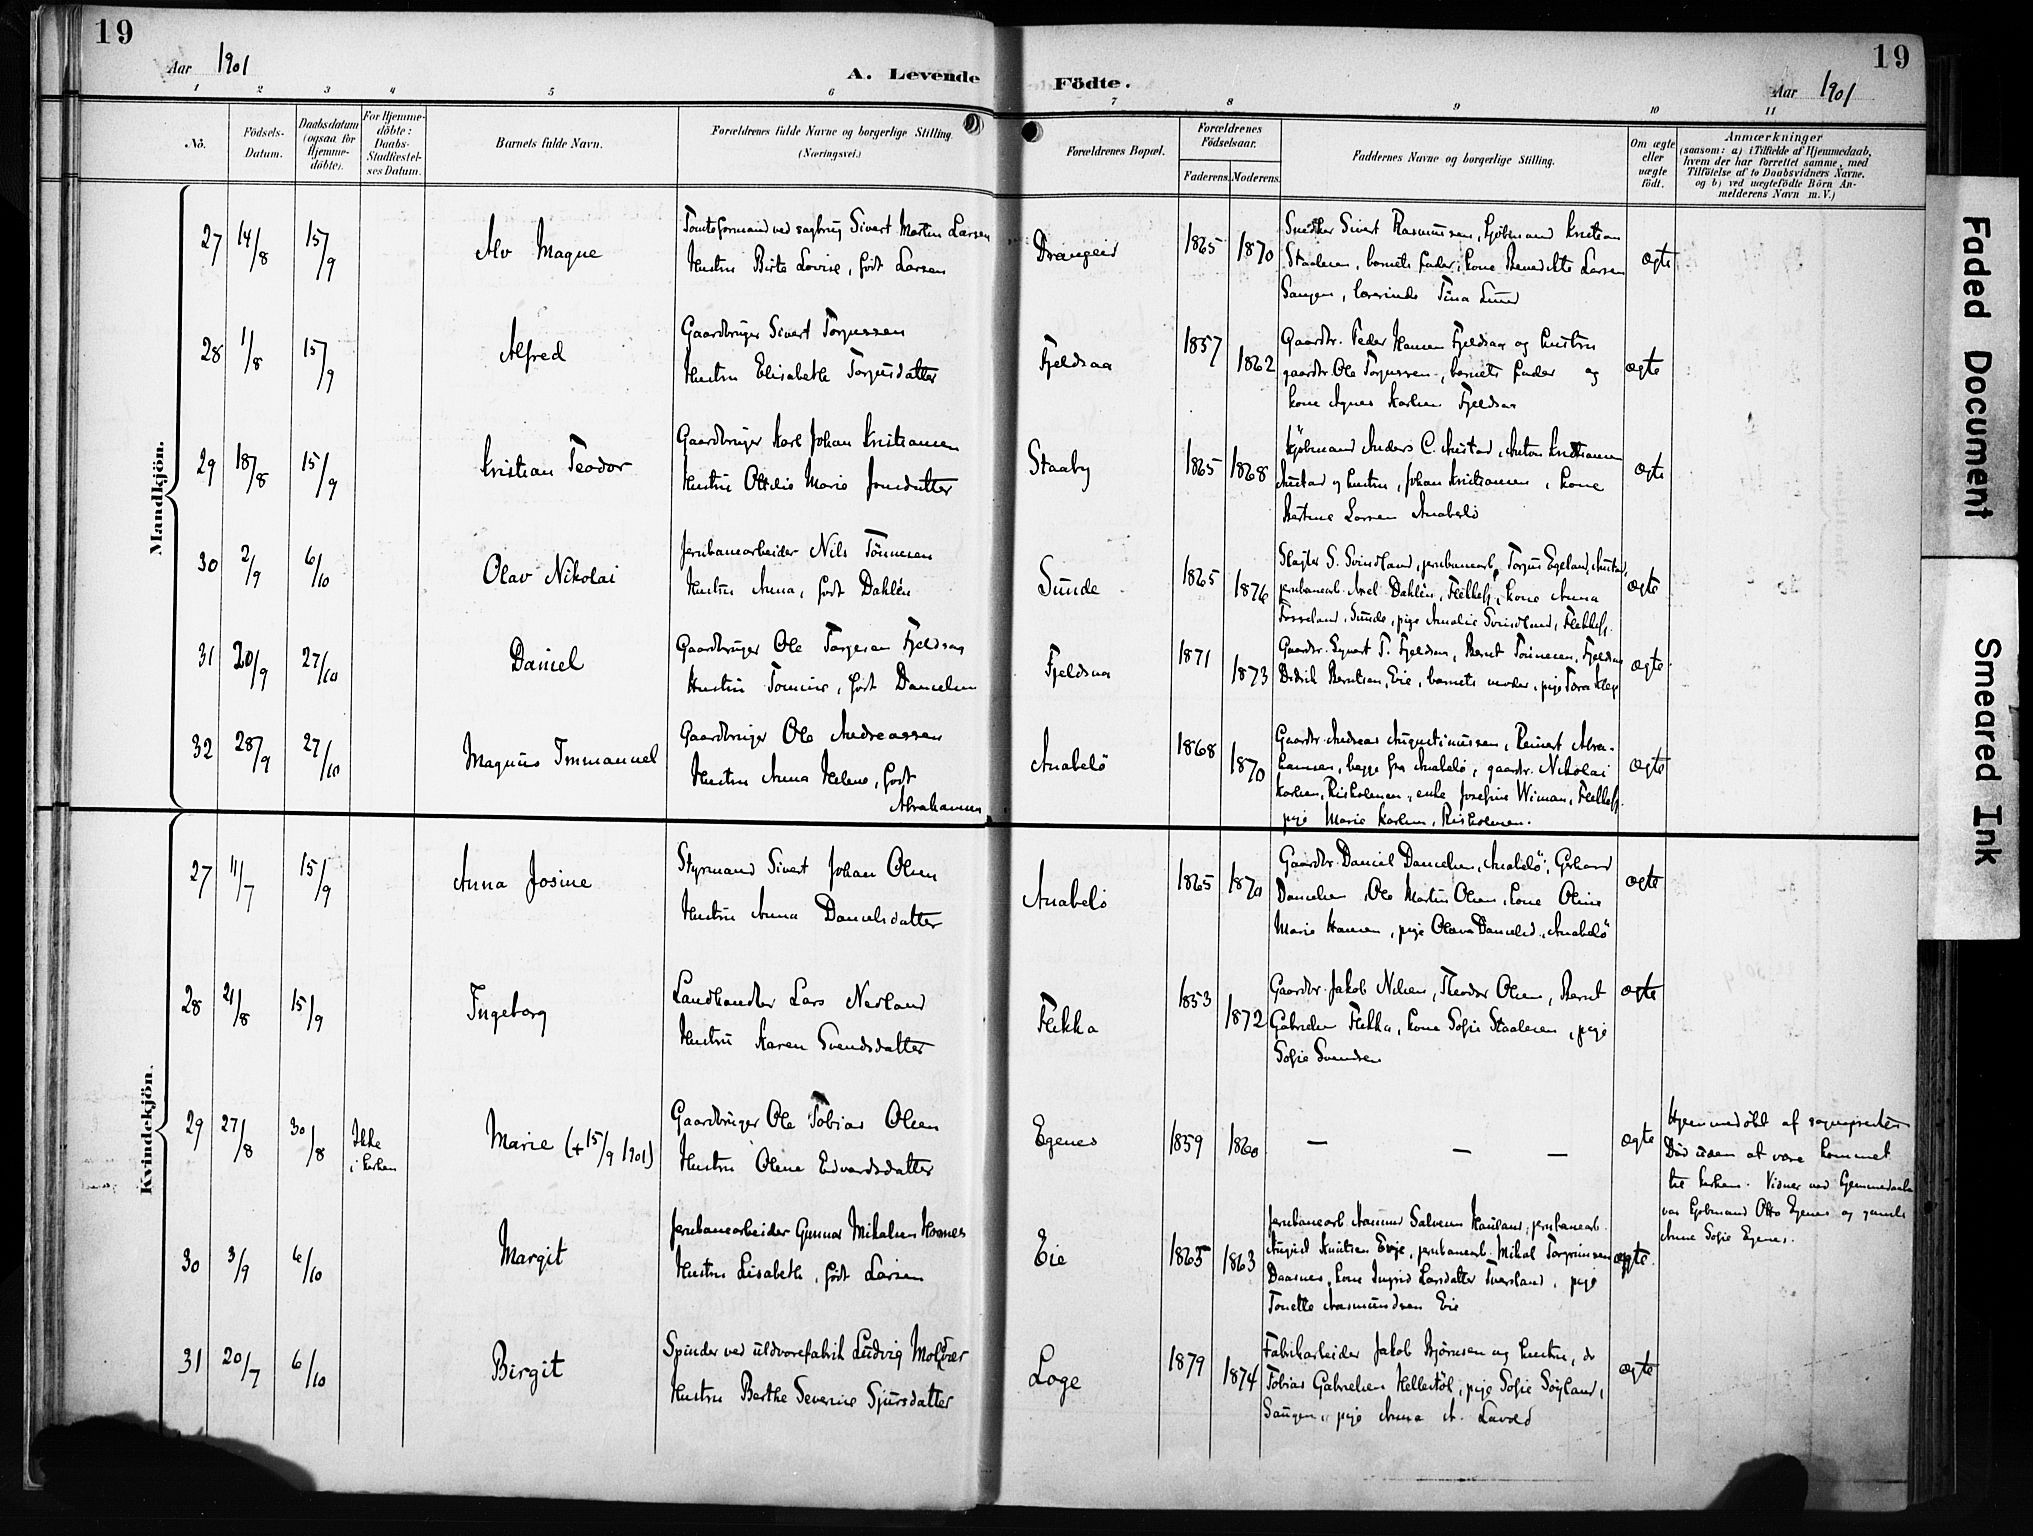 19
Aar 1901
A. Levende
Födte.
Aar 1901
19
1 2 3 4 5 6 7 8 9 10 11
Nö.
Födsels-
Datum.
Daabsdatum
(ogsaa för
Hjemme-
döbte).
For Hjemme-
döbte:
Daabs-
Stadfæstel-
ses Datum.
Barnets fulde Navn.
Forældrenes fulde Navne og borgerlige Stilling
(Næringsvei.)
Forældrenes Bopæl.
Forældrenes
Födselsaar.
Faderens. Moderens.
Faddernes Navne og borgerlige Stilling.
Om ægte
eller
uægte
födt.
Anmærkninger
(saasom: a) i Tilfælde af Hjemmedaab,
hvem der har forrettet samme, med
Tilföielse af to Daabsvidners Navne,
og b) ved uægtefödte Börn An-
melderens Navn m. V.)
Mandkjön.
27 14/8 15/9 Alv Magne
Tomteformand ved sagbrug Sivert Martin Larsen
Hustru Birte Lovise, født Larsen
Drangeid 1865 1870
Snedker Sivert Rasmussen, Kjøbmand Kristian
Staalesen, barnets fader, kone Benedikte Larsen
Saugen, lærerinde Tina Lund
ægte
28 1/8 15/9 Alfred
Gaardbruger Sivert Torjussen
Hustru Elisabeth Torjusdatter
Fjeldsaa 1857 1862
Gaardbr. Peder Hansen Fjeldsaa og hustru
gaardbr. Ole Torjussen, barnets fader og
kone Agnes Karlsen Fjeldsaa
ægte
29 18/8 15/9 Kristian Teodor
Gaardbruger Karl Johan Kristiansen
Hustru Ottilie Marie Jonsdatter
Staaby 1865 1868
Kjöbmand Anders C. Austad, Anton Kristiansen
Austad og hustru, Johan Kristiansen, kone
Bertine Larsen Anabelö
ægte
30 2/9 6/10 Olav Nikolai
Jernbanearbeider Nils Tönnesen
Hustru Anna, født Dahlén
Sunde 1865 1876
Slagter S. Svindland, jernbanearb. Torjus Egeland, Austad,
jernbanearb. Axel Dahlén, Flekkefj., kone Anna
Fosseland, Sunde, pige Amalie Svindland, Flekkefj.
ægte
31 20/9 27/10 Daniel
Gaardbruger Ole Torjesen Fjeldsaa
Hustru Tomine, født Danielsen
Fjeldsaa 1871 1873
Gaardbr. Sigvart T. Fjeldsaa, Bernt Tönnesen, Fjeldsaa
Didrik Berntsen, Eie, barnets moder, pige Tora
ægte
32 28/9 27/10 Magnus Immanuel
Gaardbruger Ole Andreassen
Hustru Anna Helene, født
Abrahamsen
Anabelö 1868 1870
Gaardbr. Andreas Augustinussen, Reinert Abra-
hamsen, begge fra Anabelö, gaardbr. Nikolai
Karlsen, Risholmen, enke Josefine Wiman, Flekkefj.
pige Marie Karlsen, Risholmen.
ægte
Kvindekjön.
27 11/7 15/9 Anna Josine
Styrmand Sivert Johan Olsen
Hustru Anna Danielsdatter
Anabelö 1865 1870
Gaardbr. Daniel Danielsen, Anabelö, Gerhard
Danielsen, Ole Martin Olsen, kone Oline
Marie Hansen, pige Olava Danielsd., Anabelö
ægte
28 21/8 15/9 Ingeborg
Landhandler Lars Nedland
Hustru Karen Svendsdatter
Flikka 1853 1872
Gaardbr. Jakob Nilsen, Theodor Olsen, Bernt
Gabrielsen Flikka, kone Sofie Staalesen, pige
Sofie Svendsen
ægte
29 27/8 30/8 Ikke
i kirken
Marie (+ 15/9 1901)
Gaardbruger Ole Tobias Olsen
Hustru Olene Edvardsdatter
Egenes 1859 1860
— — —
ægte
Hjemmedöbt af sognepresten
Död uden at være kommet
til kirken. Vidner ved hjemmedaaben
var kjøbmand Otto Egenes og gamle
Anne Sofie Egenes.
30 3/9 6/10 Margit
Jernbanearbeider Gunnar Mikalsen Homnes
Hustru Lisabeth, født Larsen
Eie 1865 1863
jernbanearb. Salvesen Hauland, jernbanearb.
Knutsen Evje, jernbanearb. Mikal Torgrimsen
Daasnes, kone Ingrid Larsdatter Tversland, pige
Tonette Aasmundsen Eie
ægte
31 20/7 6/10 Birgit
Spinder ved uldvarefabrik Ludvig Molvær
Hustru Berthe Severine Sjursdatter
Loge 1879 1874
Fabrikarbeider Jakob Bjørnsen og hustru, do
Tobias Gabrielsen Hellestöl, pige Sofie Söyland,
Saugen, pige Anna A. Lavold
ægte
Faded Document
Smeared Ink